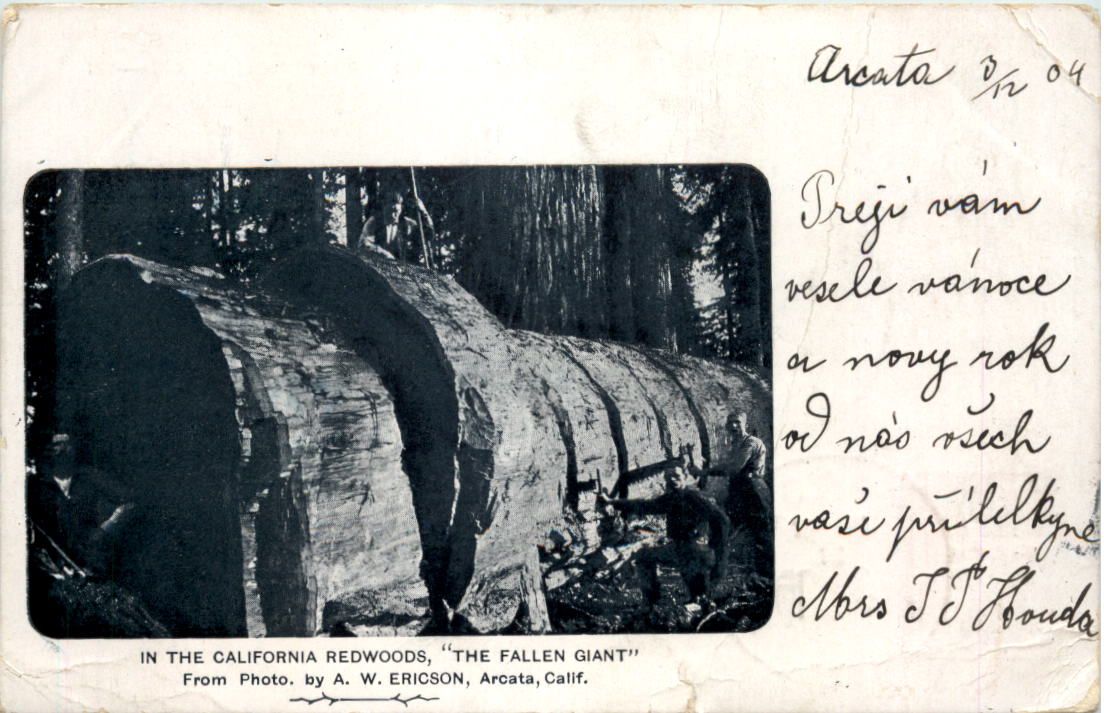 Arcata 3/12 04
Preji vám
vesele vánoce
a novy rok
od nás všech
vaše přítelkyně
Mrs J P Houda
IN THE CALIFORNIA REDWOODS, "THE FALLEN GIANT"
From Photo. by A. W. ERICSON, Arcata, Calif.